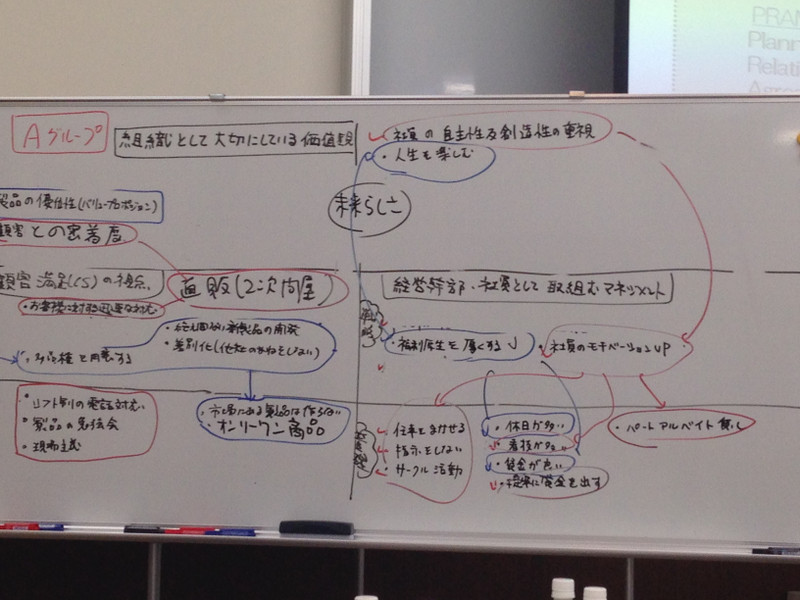 PRAM
Plann
Relati
Agree
Aグループ
組織として大切にしている価値観
社員の自主性及創造性の重視
・人生を楽しむ
製品の優位性(バリュープロポジション)
未来らしさ
顧客との密着度
顧客満足(CS)の視点
直販(2次問屋)
経営幹部・社員として取組むマネジメント
・お客様に対する迅速な対応
・絶え間ない新製品の開発
・差別化(他社のまねをしない)
戦略
・福利厚生を厚くする
・社員のモチベーションUP
・多品種を用意する
・市場にある製品は作らない
・オンリーワン商品
・リフト別の電話対応
・製品の勉強会
・現場主義
仕事をまかせる
指示をしない
サークル活動
・休日が多い
・賃金が良い
・提案に賃金を出す
・パートアルバイト無し